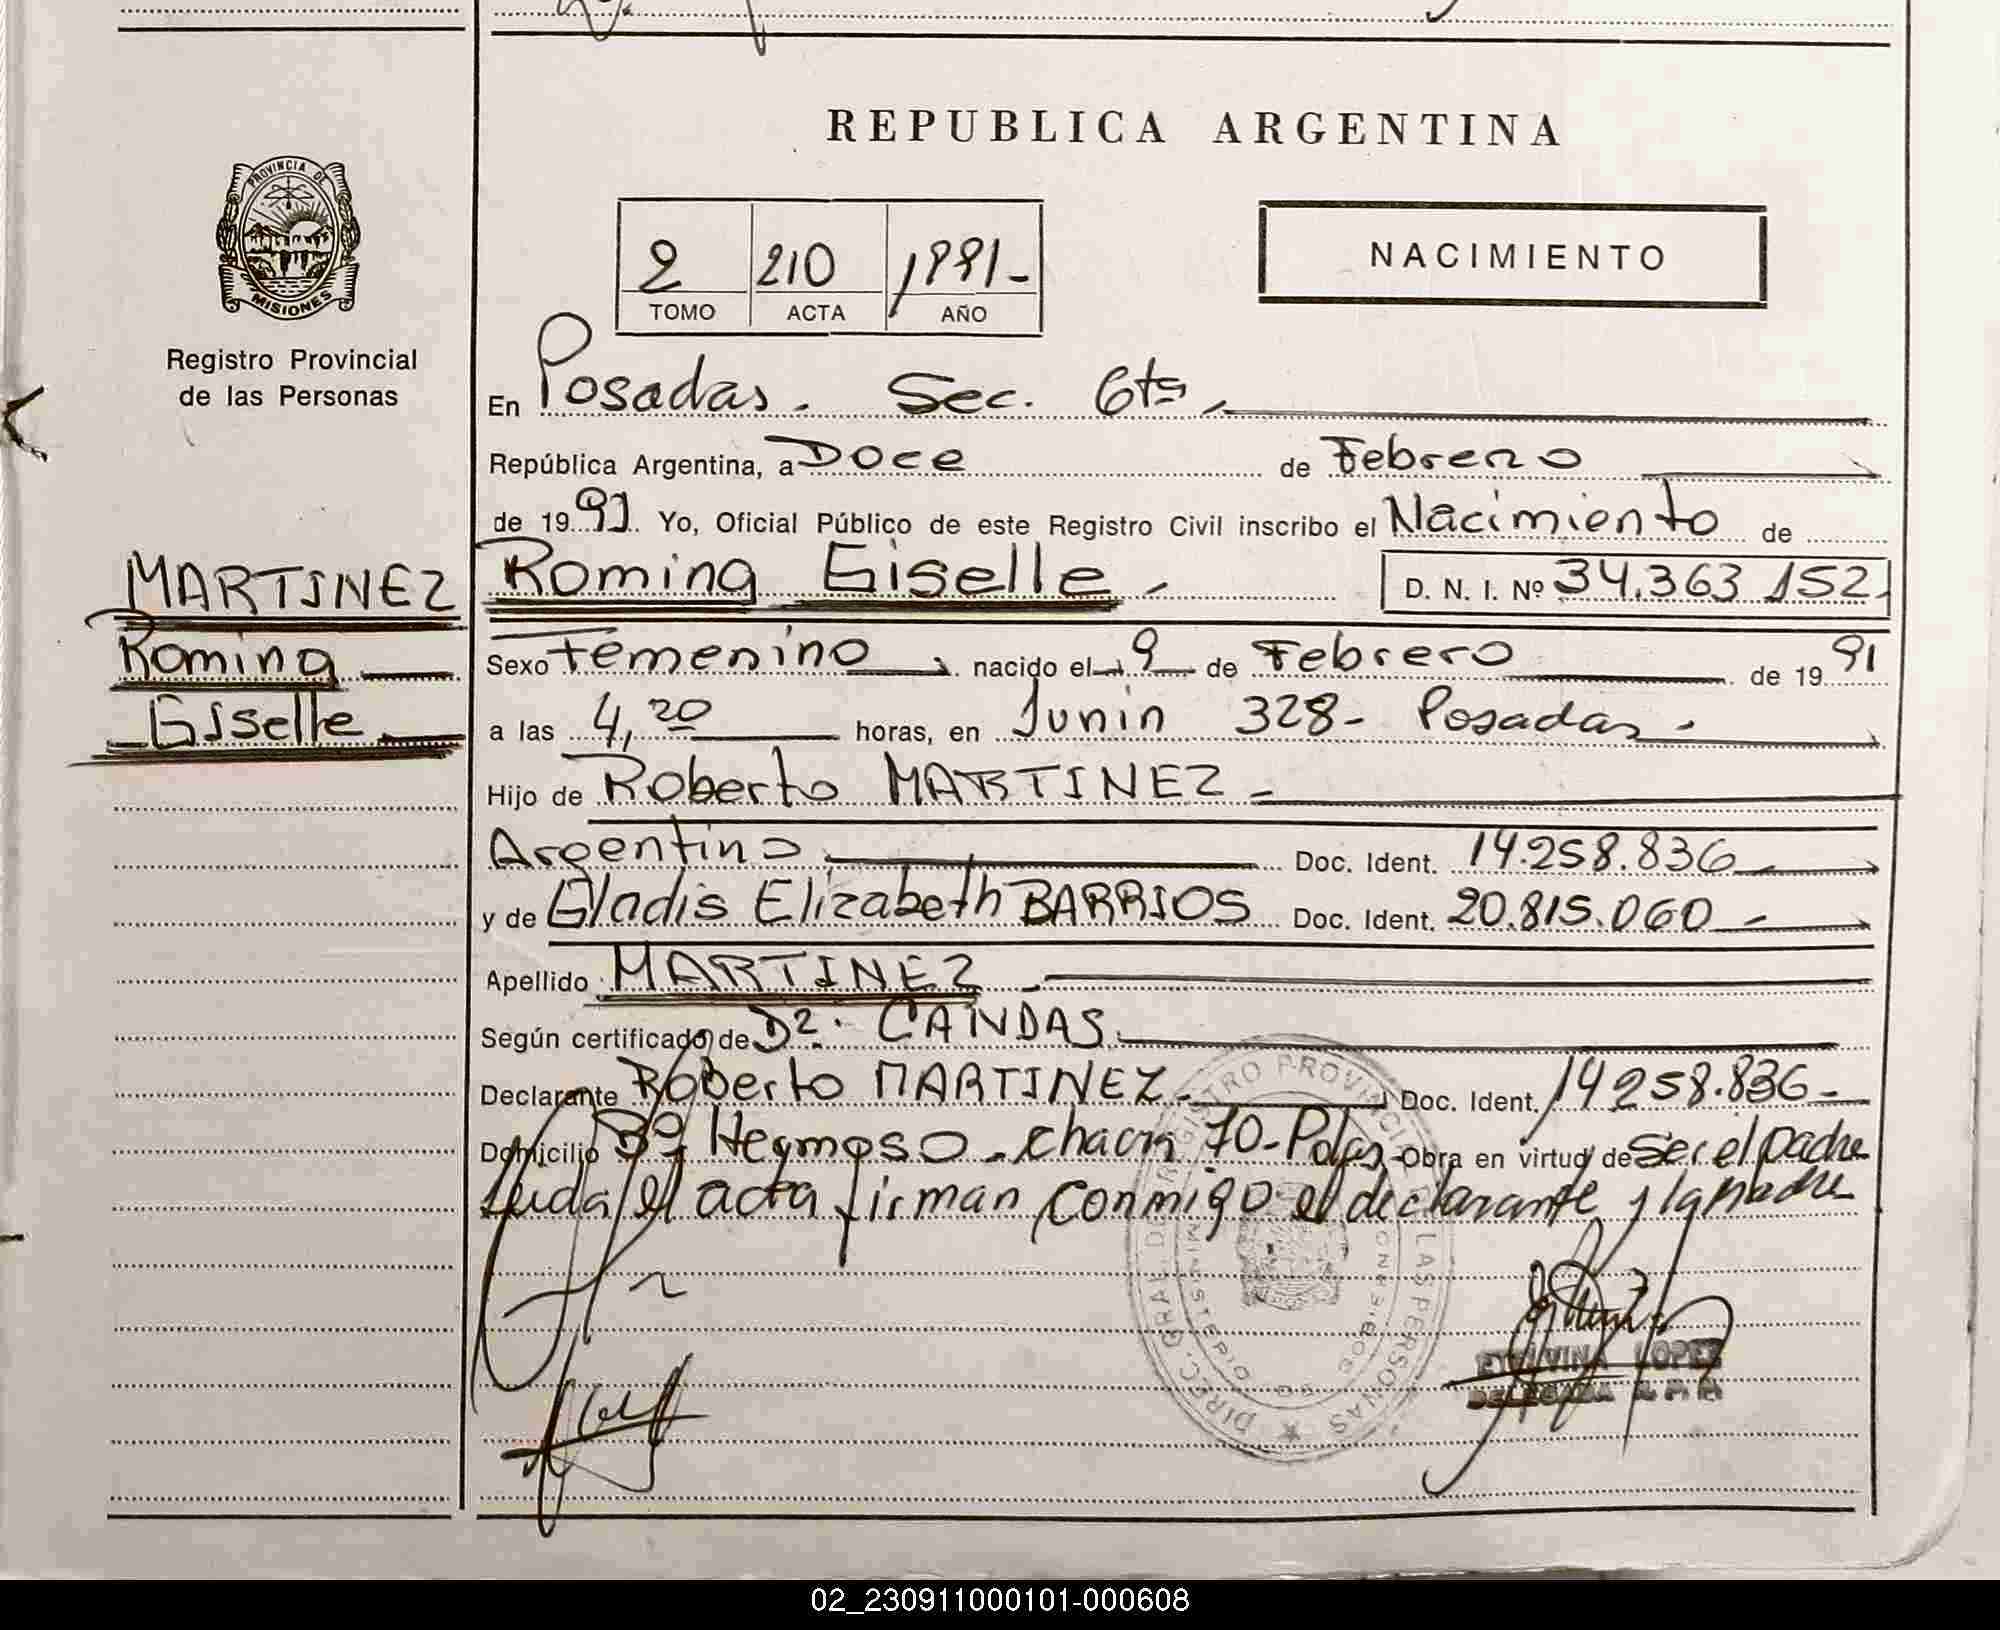 REPUBLICA ARGENTINA
PROVINCIA DE
MISIONES
Registro Provincial
de las Personas
2 210 1991-
TOMO ACTA AÑO
NACIMIENTO
En Posadas. Sec. 6ta
República Argentina, a Doce de Febrero
de 1991. Yo, Oficial Público de este Registro Civil inscribo el Nacimiento de
MARTINEZ
Romina
Giselle
Romina Giselle D. N. I. Nº 34.363.152
Sexo Femenino nacido el 9 de Febrero de 1991
a las 4,20 horas, en Junin 328- Posadas.
Hijo de Roberto MARTINEZ
Argentino Doc. Ident. 14.258.836
y de Gladis Elizabeth BARRIOS Doc. Ident. 20.815.060
Apellido MARTINEZ
Según certificado de CANDAS
Declarante Roberto MARTINEZ Doc. Ident. 14258.836-
Domicilio Bº Hermoso chacra 70- Obra en virtud de ser el padre
Leida el acta firman conmigo el declarante y la madre
LOPEZ
DELEGADA R.P.P.
02_230911000101-000608